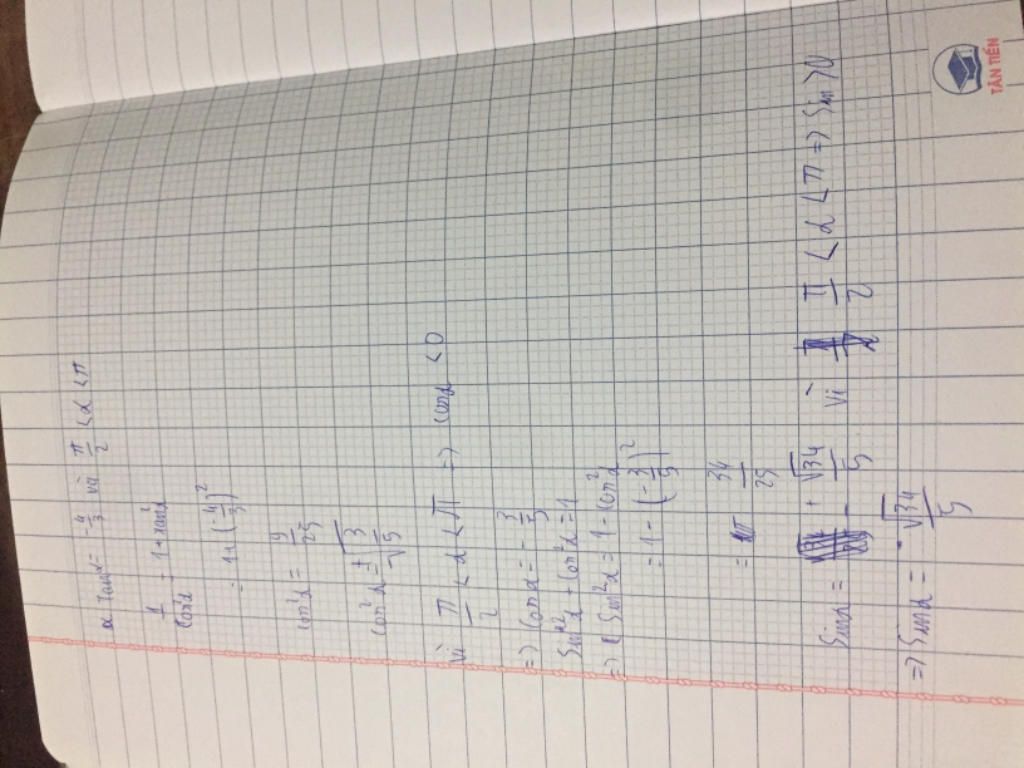 a. tanα = -4/3 và π/2 < α < π
1/cos²α = 1 + tan²α
= 1 + (-4/3)²
cos²α = 9/25
cos²α = ± √3/√5
Vì π/2 < α < π => cosα < 0
=> cosα = -3/5
Sin²α + cos²α = 1
=> Sin²α = 1 - cos²α
= 1 - (-3/5)²
= 34/25
Sinα = ± √34/5 Vì π/2 < α < π => Sin > 0
=> Sinα = √34/5
TÂN TIẾN